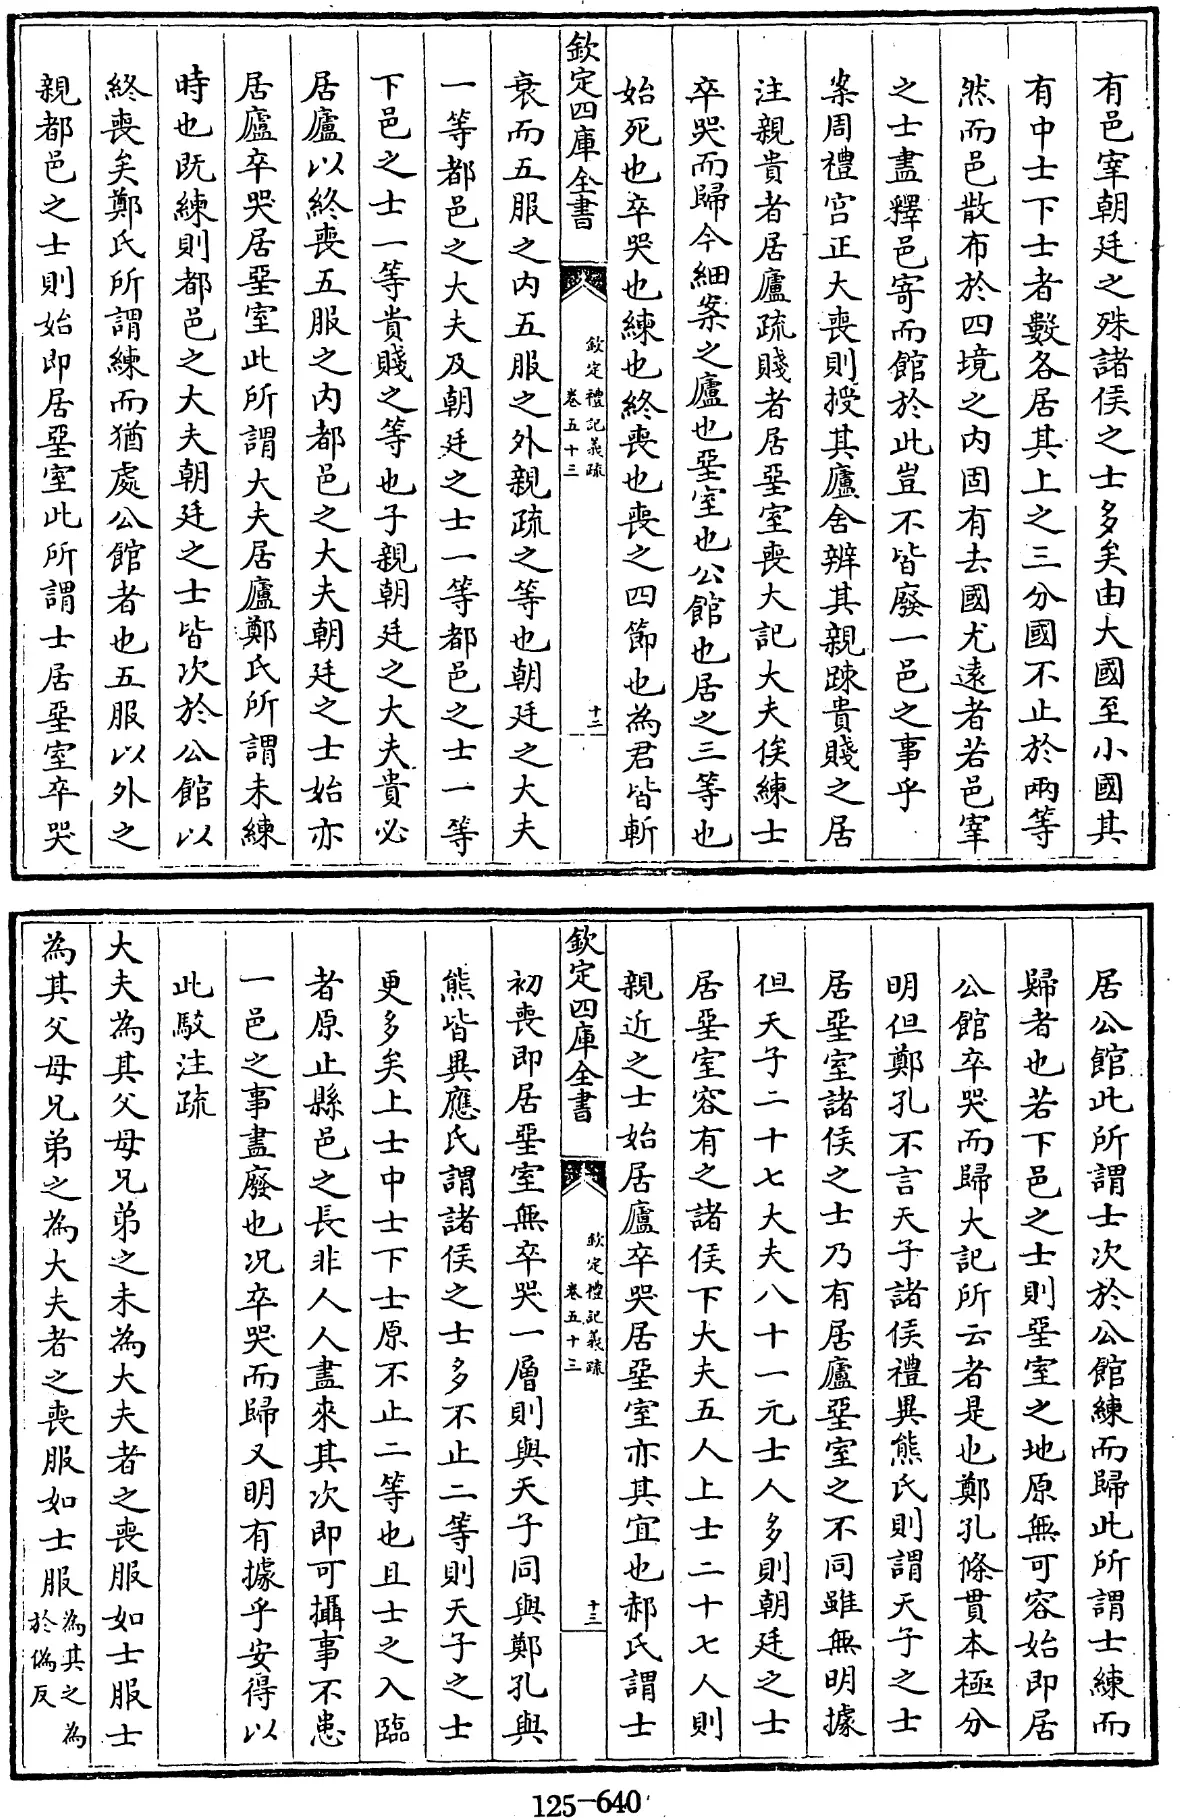 有邑宰朝廷之殊諸侯之士多矣由大國至小國其
有中士下士者數各居其上之三分國不止於兩等
然而邑散布於四境之内固有去國尤遠者若邑宰
之士盡釋邑寄而館於此豈不皆廢一邑之事乎
案周禮宫正大喪則授其廬舍辨其親踈貴賤之居
注親貴者居廬疏賤者居堊室喪大記大夫俟練士
卒哭而歸今細案之廬也堊室也公館也居之三等也
始死也卒哭也練也終喪也喪之四節也為君皆斬
欽定四庫全書
欽定禮記義疏
卷五十三
十二
衰而五服之内五服之外親疏之等也朝廷之大夫
一等都邑之大夫及朝廷之士一等都邑之士一等
下邑之士一等貴賤之等也子親朝廷之大夫貴必
居廬以終喪五服之内都邑之大夫朝廷之士始亦
居廬卒哭居堊室此所謂大夫居廬鄭氏所謂未練
時也既練則都邑之大夫朝廷之士皆次於公館以
終喪矣鄭氏所謂練而猶處公館者也五服以外之
親都邑之士則始即居堊室此所謂士居堊室卒哭
居公館此所謂士次於公館練而歸此所謂士練而
歸者也若下邑之士則堊室之地原無可容始即居
公館卒哭而歸大記所云者是也鄭孔條貫本極分
明但鄭孔不言天子諸侯禮異熊氏則謂天子之士
居堊室諸侯之士乃有居廬堊室之不同雖無明據
但天子二十七大夫八十一元士人多則朝廷之士
居堊室容有之諸侯下大夫五人上士二十七人則
親近之士始居廬卒哭居堊室亦其宜也郝氏謂士
欽定四庫全書
欽定禮記義疏
卷五十三
十三
初喪即居堊室無卒哭一層則與天子同與鄭孔與
熊皆異應氏謂諸侯之士多不止二等則天子之士
更多矣上士中士下士原不止二等也且士之入臨
者原止縣邑之長非人人盡來其次即可攝事不患
一邑之事盡廢也况卒哭而歸又明有據乎安得以
此駮注疏
大夫為其父母兄弟之未為大夫者之喪服如士服士
為其父母兄弟之為大夫者之喪服如士服為其之為
於偽反
125-640